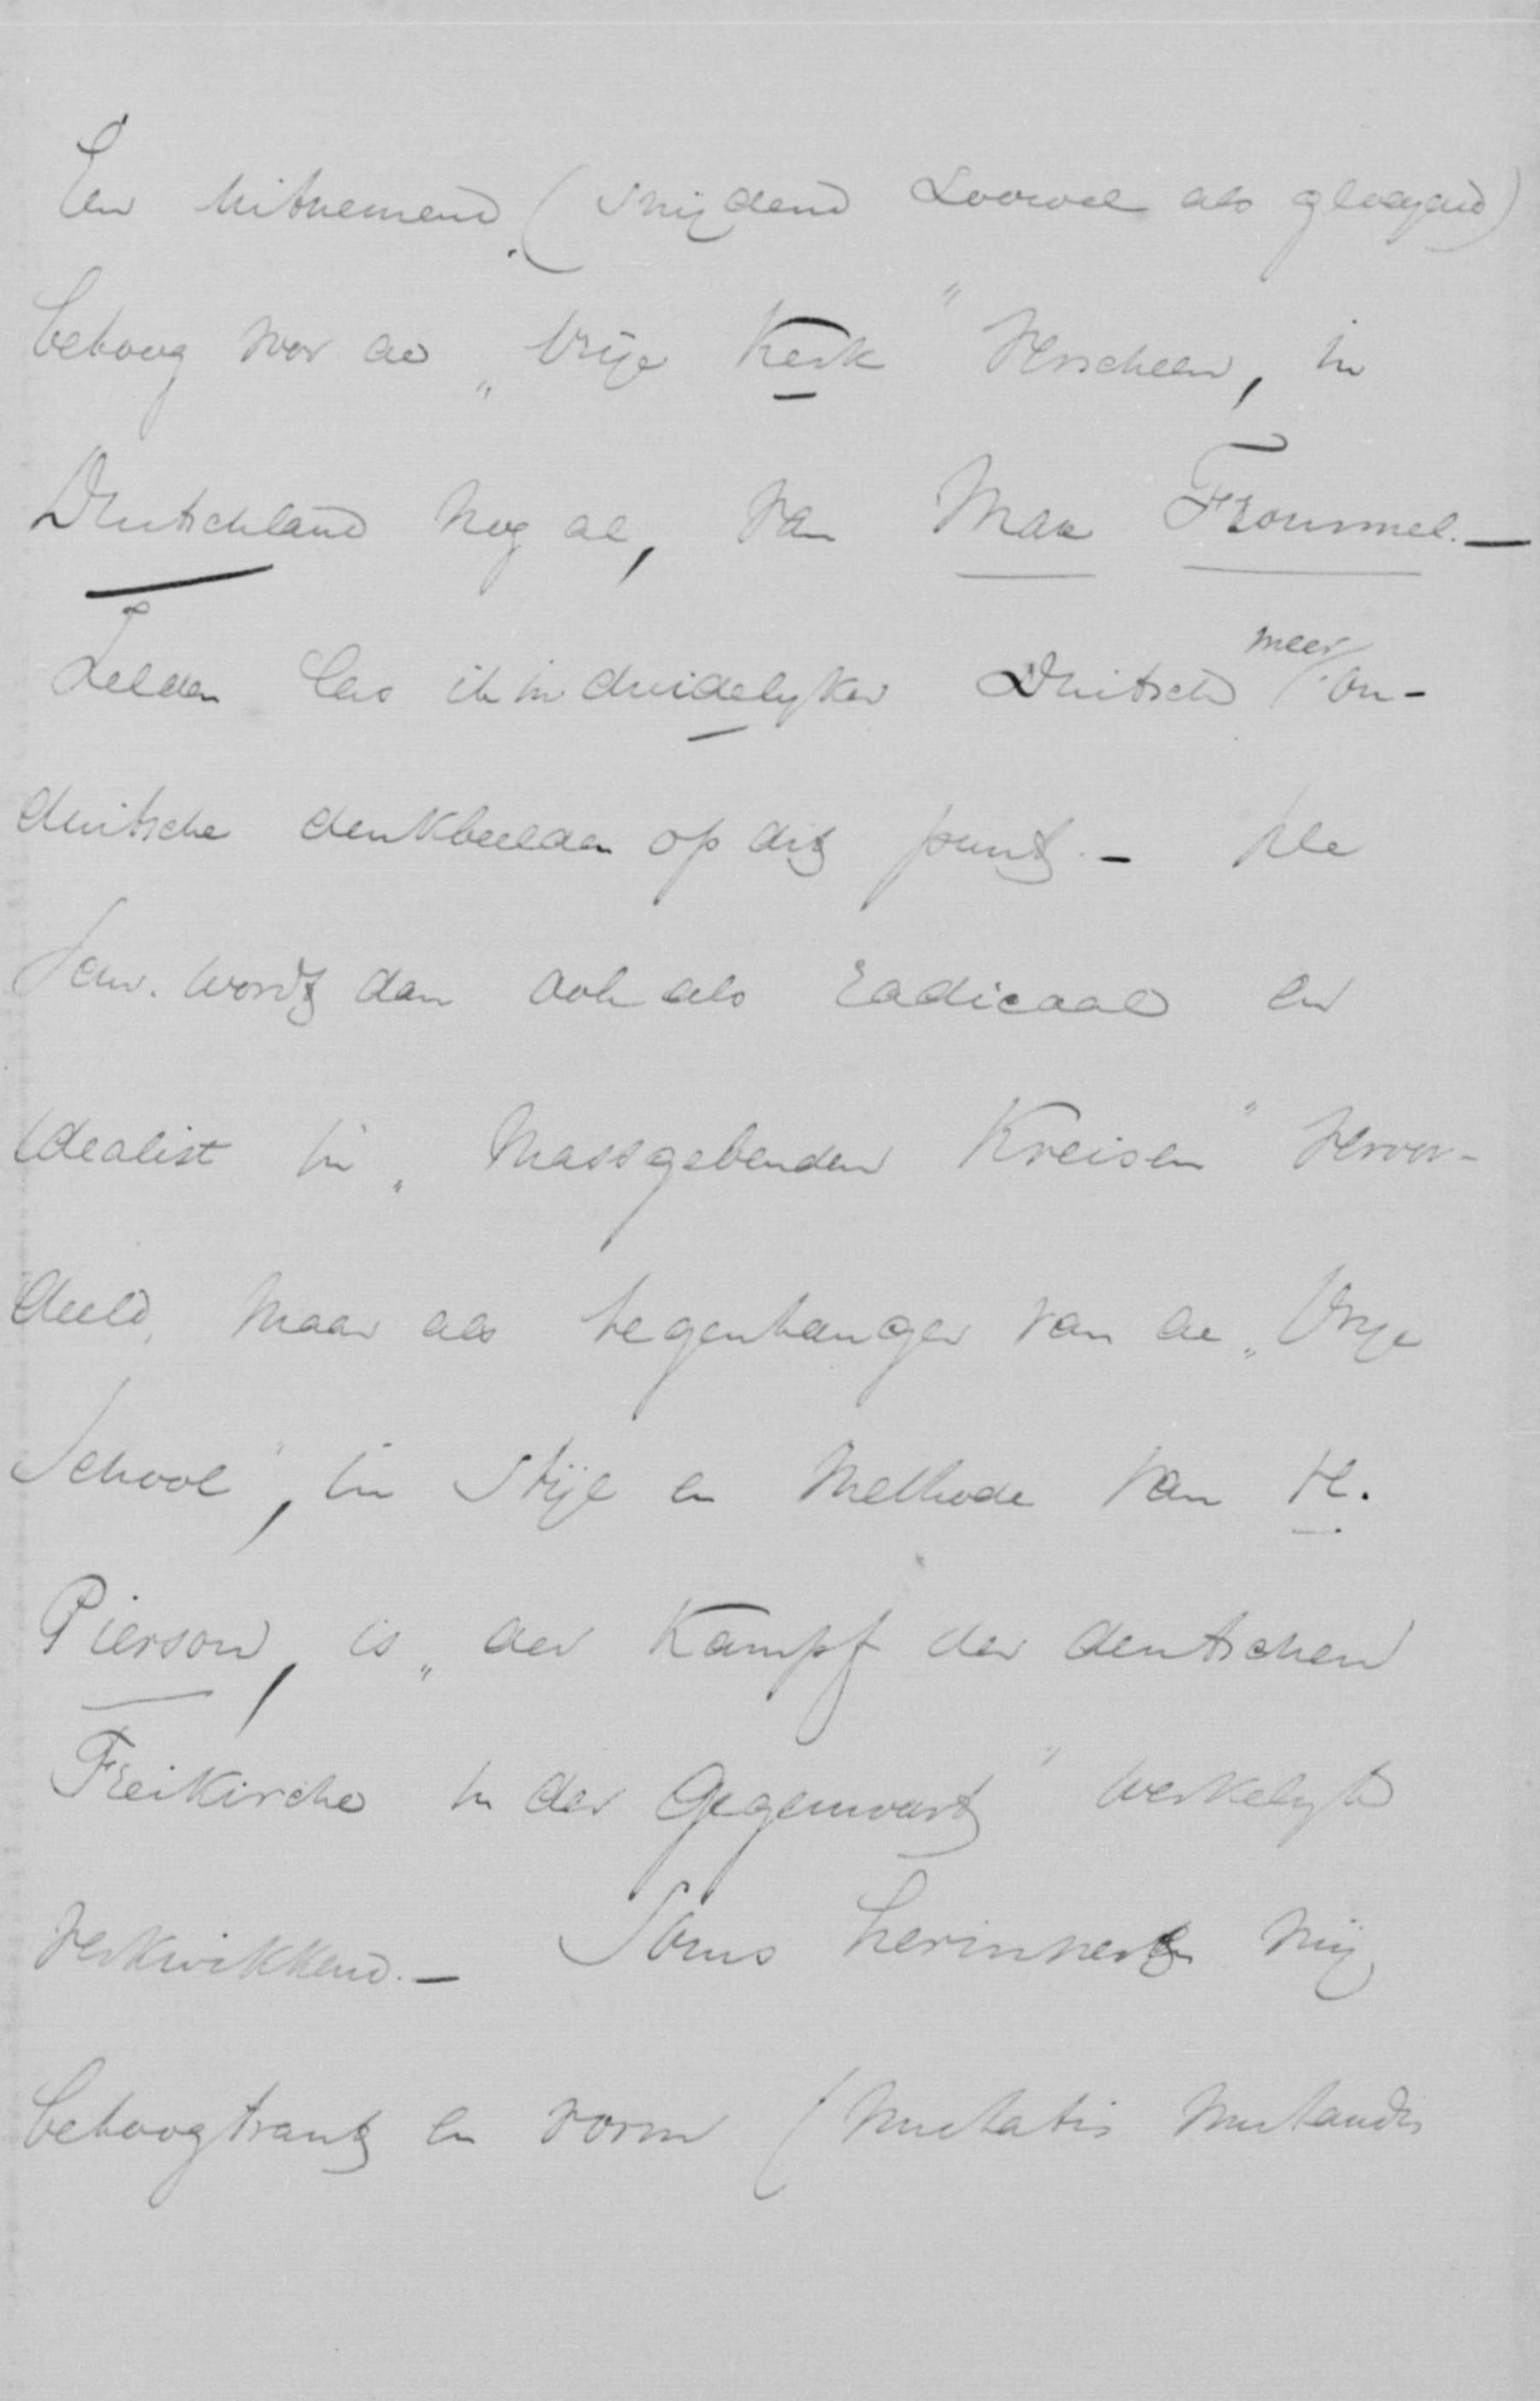 Een uitnemend (snijdend zoowel als gloeyend)
betoog voor de „Vrije Kerk" verscheen, in
Deutschland nog al, van Max Frommel. —
Zelden las ik in duidelyker Duitsch meer on-
duitsche denkbeelden op dit punt. — De
Schr. wordt dan ook als radicaal en
idealist in „massgebenden Kreisen" veroor-
deeld, maar als tegenhanger van de „Vrye
School", in stijl en methode van H.
Pierson, is „der Kampf der deutschen
Freikirche in der Gegenwart" werkelyk
verkwikkend. — Soms herinnert mij
betoogtrant en vorm (mutatis mutandis